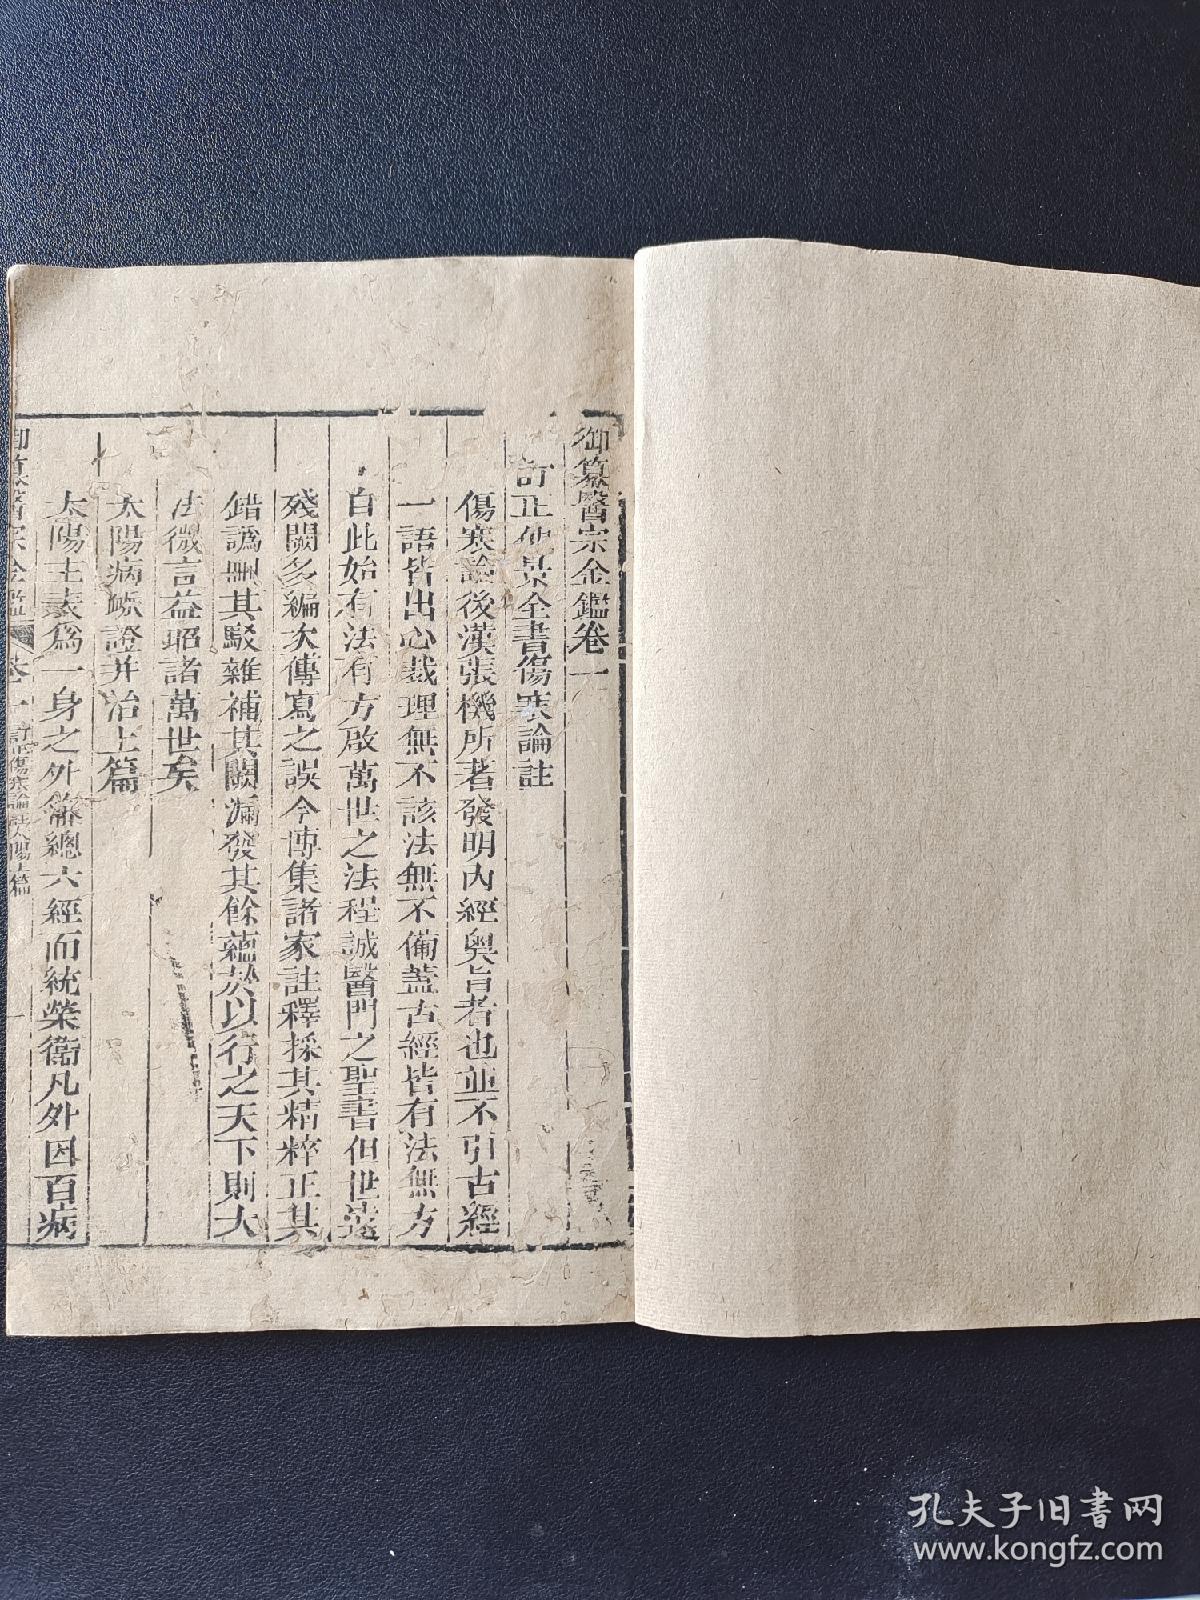 御纂醫宗金鑑卷一
訂正仲景全書傷寒論註
傷寒論後漢張機所著發明內經奧旨者也並不引古經
一語皆出心裁理無不該法無不備蓋古經皆有法無方
自此始有法有方啟萬世之法程誠醫門之聖書但世遠
殘闕多編次傳寫之誤今博集諸家註釋採其精粹正其
錯譌刪其駁雜補其闕漏發其餘蘊於以行之天下則大
法微言益昭諸萬世矣
太陽病脈證并治上篇
太陽主表為一身之外藩總六經而統榮衞凡外因百病
御纂醫宗金鑑 卷一 訂正傷寒論註太陽上篇 一
孔夫子旧书网
www.kongfz.com